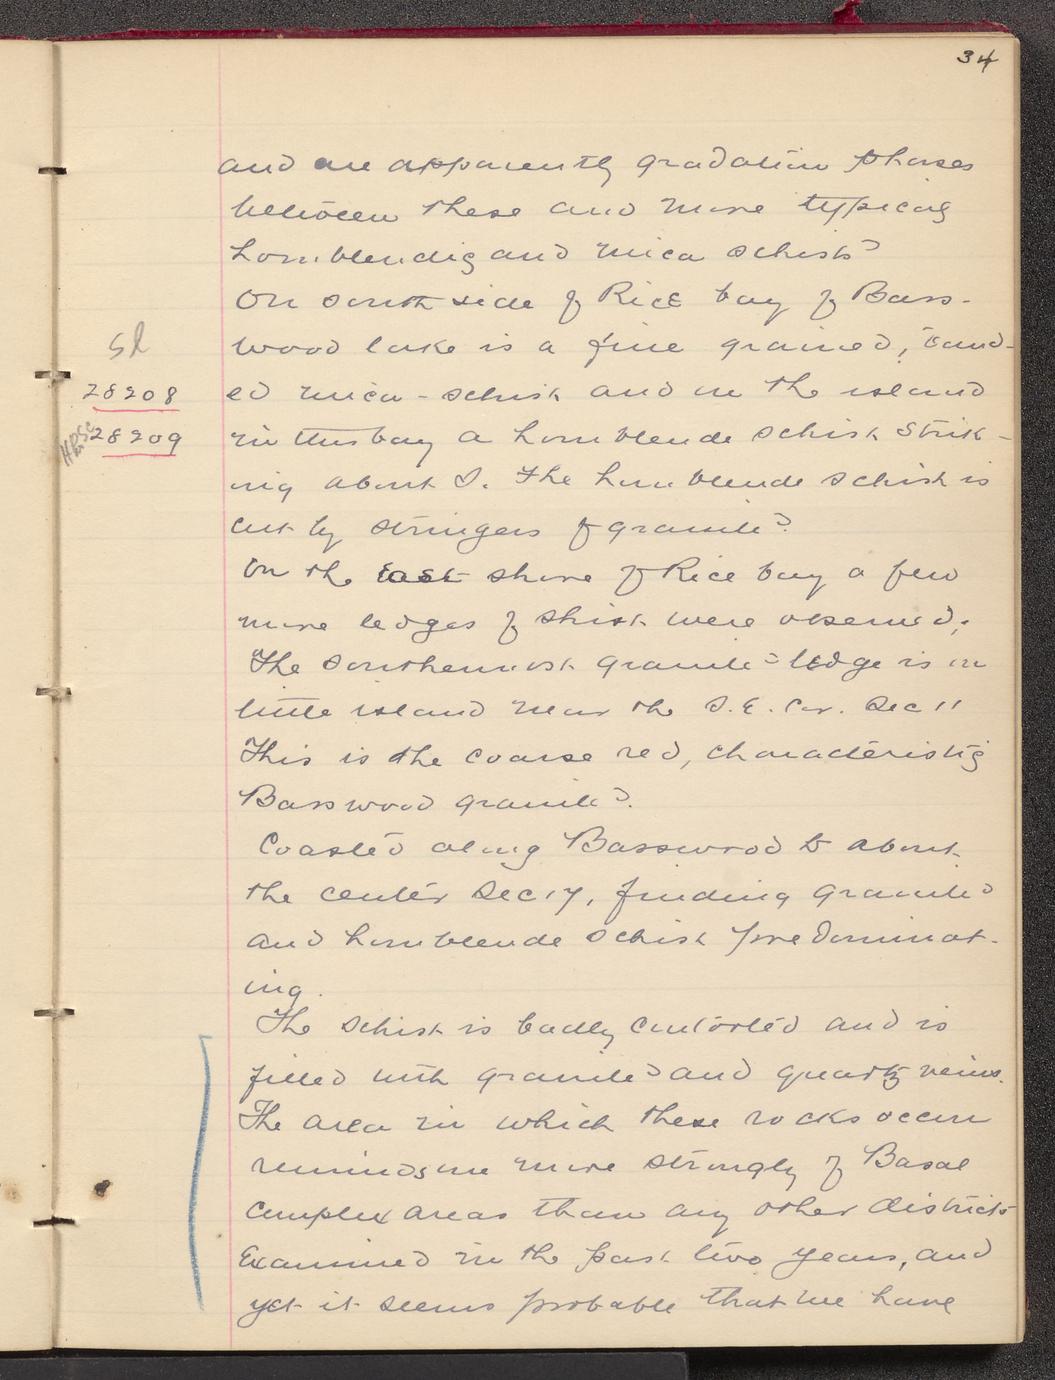 34
and are apparently gradation phases
between these and more typical
hornblendic and mica schists
On south side of Rice bay of Bass-
wood lake is a fine grained, band-
Sl
28208
ed mica-schist and on the island
HBSc
28209
in this bay a hornblende schist strik-
ing about S. The hornblende schist is
cut by stringers of granite.
On the East shore of Rice bay a few
more ledges of shist were observed.
The southernmost granite ledge is on
little island near the S.E. Cor. Sec 11
This is the coarse red, characteristic
Basswood granite.
Coasted along Basswood to about
the center Sec 17, finding granite
and hornblende schist predominat-
ing.
The schist is badly contorted and is
filled with granite and quartz veins.
The area in which these rocks occur
reminds me more strongly of Basal
Complex areas than any other districts
Examined in the past two years, and
yet it seems probable that we have